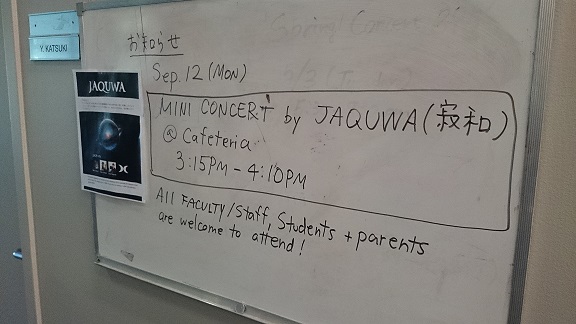 Y. KATSUKI
お知らせ
Sep. 12 (MON)
MINI CONCERT by JAQUWA (寂和)
@ Cafeteria
3:15PM - 4:10PM
All FACULTY/Staff, Students + parents
are welcome to attend!
JAQUWA